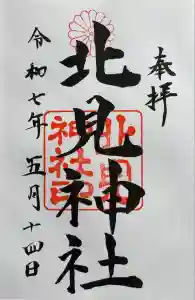 奉拝
北見神社
北見
神社印
令和七年 五月 十四日